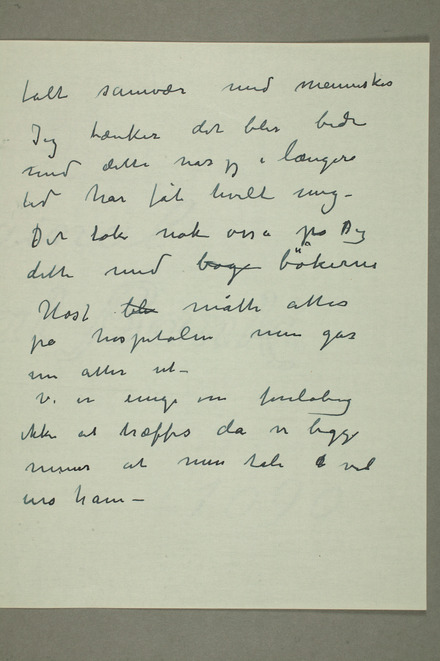 talt samvær med mennesker
Jeg tænker det blir bedre
med dette nar jeg i længere
tid har fåt hvilt mig –
Det tok nok også på Dig
dette med boge bökerne
Høst ble måtte attes
på hospitalen men går
nu atter ut –
Vi er enige om foreløbig
ikke at træffes da vi begge
mener at min tale vel
ham –